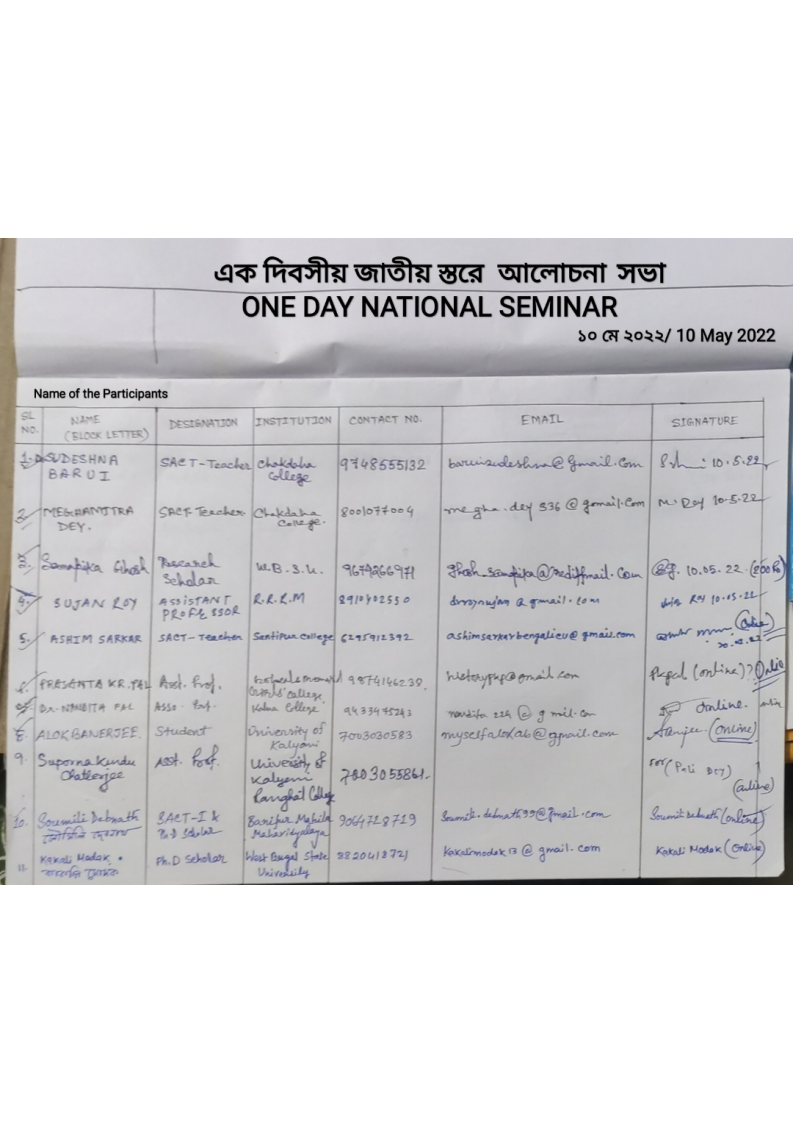 এক দিবসীয় জাতীয় স্তরে আলোচনা সভা
ONE DAY NATIONAL SEMINAR
১০ মে ২০২২/ 10 May 2022
Name of the Participants
SL NO. NAME (BLOCK LETTER) DESIGNATION INSTITUTION CONTACT NO. EMAIL SIGNATURE
1. SUDESHNA BARUI SACT-Teacher Chakdaha College 9748555132 baruisudeshna@gmail.com 10.5.22
2. MEGHAMITRA DEY. SACT Teacher Chakdaha College. 8001077004 megha.dey536@gomail.com M. Dey 10-5-22
3. Samapika Ghosh Research Scholar W.B.S.U. 9674266971 ghosh_samapika@rediffmail.com 10.05.22
4. SUJAN ROY ASSISTANT PROFESSOR R.R.R.M 8910402550 @gmail.com 10.05.22
5. ASHIM SARKAR SACT-Teacher Santipur College 6295912392 ashimsarkarbengalicu@gmail.com (Online)
PRASANTA KR. PAL Asst. Prof. College, 9874146238 historypkp@gmail.com Pkpal (online)? Online
Dr. NANDITA PAL Asso. Prof. Kalna College 9433475243 Online.
8. ALOK BANERJEE. Student University of Kalyani 7003030583 myselfalokab@gmail.com (Online)
9. Suporna Kundu Chatterjee Asst. Prof. University of Kalyani Ranaghat College 7003055861. for (Pali DEY) (online)
10. Soumili Debnath SACT-I & Ph.D Scholar Baripur Mahila Mahavidyalaya 9064718719 Soumili.debnath99@gmail.com Soumili Debnath (online)
11. Kakali Modak Ph.D Scholar West Bengal State University 8820418721 Kakalimodak13@gmail.com Kakali Modak (Online)